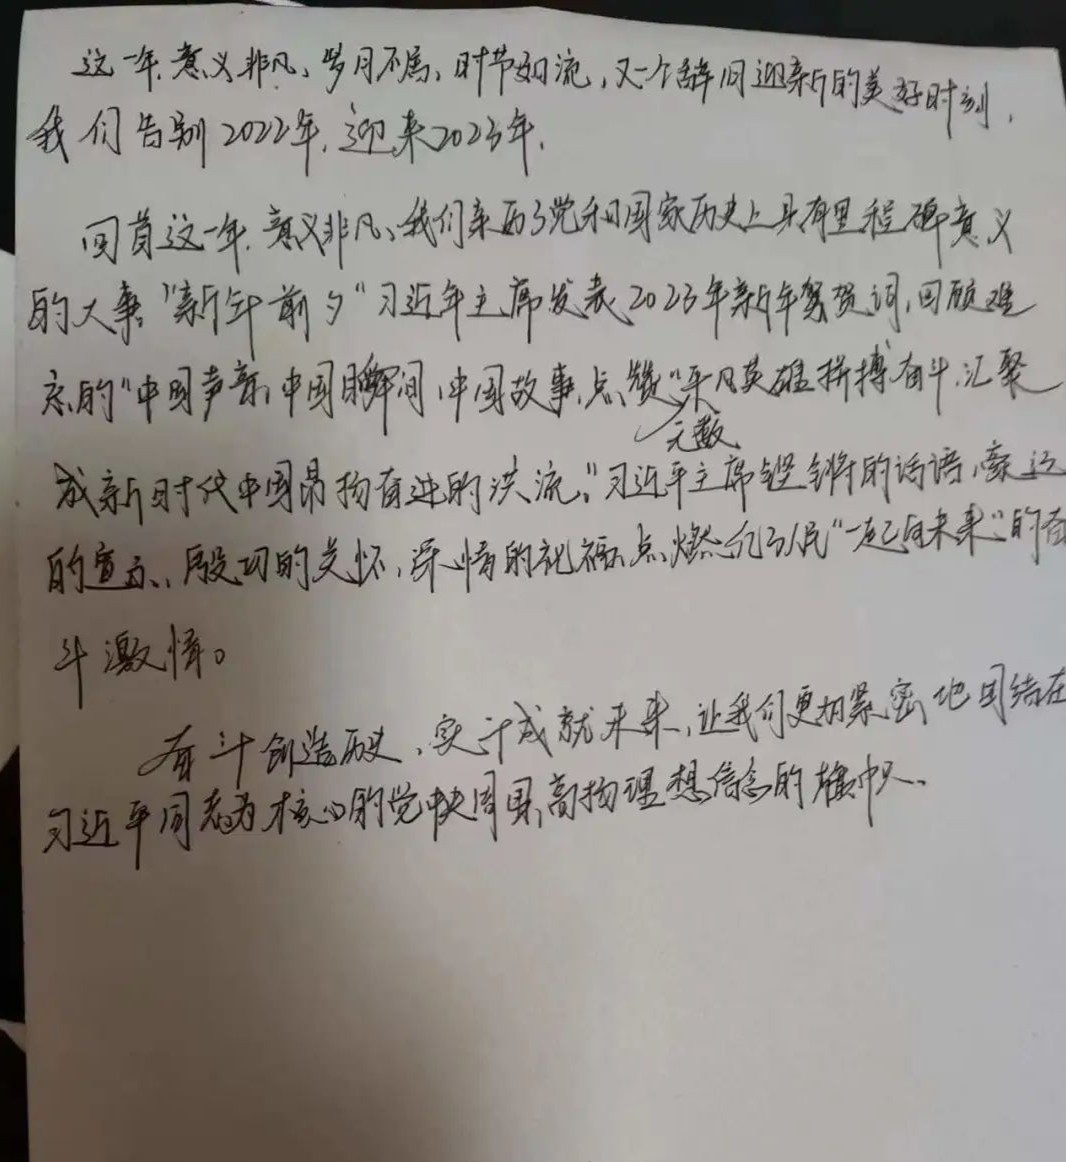 这一年,意义非凡、岁月不居、时节如流,又一个辞旧迎新的美好时刻,
我们告别2022年,迎来2023年.
回首这一年.意义非凡、我们亲历了党和国家历史上具有里程碑意义
的大事."新年前夕"习近平主席发表2023年新年贺词,回顾难
忘的"中国声音,中国瞬间,中国故事,点赞"平凡英雄拼搏奋斗,汇聚
无数
成新时代中国昂扬奋进的洪流."习近平主席铿锵的话语,豪迈
的宣示、殷切的关怀,深情的祝福,点燃亿万人民"一起向未来"的奋
斗激情。
奋斗创造历史,实干成就未来,让我们更加紧密地团结在
习近平同志为核心的党中央周围,高扬理想信念的旗帜.